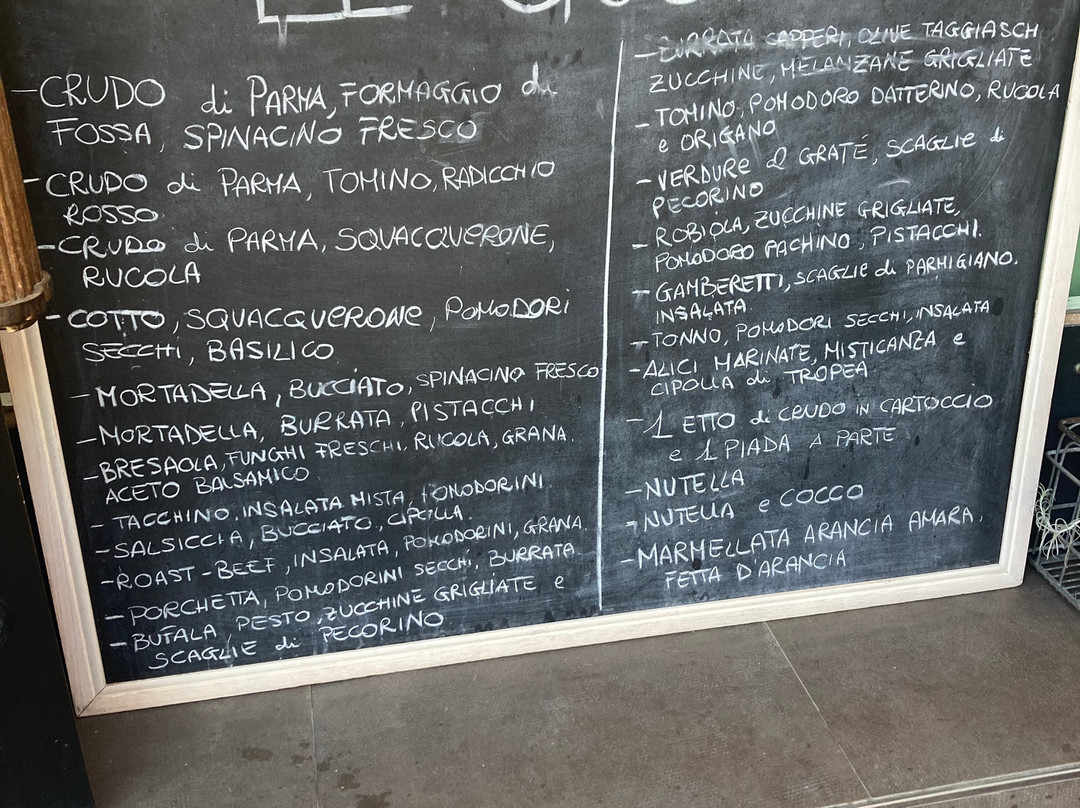 - CRUDO di PARMA, FORMAGGIO di
FOSSA, SPINACINO FRESCO
- CRUDO di PARMA, TOMINO, RADICCHIO
ROSSO
- CRUDO di PARMA, SQUACQUERONE,
RUCOLA
- COTTO, SQUACQUERONE, POMODORI
SECCHI, BASILICO
- MORTADELLA, BUCCIATO, SPINACINO FRESCO
- MORTADELLA, BURRATA, PISTACCHI
- BRESAOLA, FUNGHI FRESCHI, RUCOLA, GRANA,
ACETO BALSAMICO
- TACCHINO, INSALATA MISTA, POMODORINI
- SALSICCIA, BUCCIATO, CIPOLLA.
- ROAST-BEEF, INSALATA, POMODORINI, GRANA.
- PORCHETTA, POMODORINI SECCHI, BURRATA
- BUFALA, PESTO, ZUCCHINE GRIGLIATE e
SCAGLIE di PECORINO
- BURRATA CAPPERI, OLIVE TAGGIASCH
ZUCCHINE, MELANZANE GRIGLIATE
- TOMINO, POMODORO DATTERINO, RUCOLA
e ORIGANO
- VERDURE GRATÉ, SCAGLIE di
PECORINO
- ROBIOLA, ZUCCHINE GRIGLIATE,
POMODORO PACHINO, PISTACCHI.
- GAMBERETTI, SCAGLIE di PARMIGIANO.
INSALATA
- TONNO, POMODORI SECCHI, INSALATA
- ALICI MARINATE, MISTICANZA e
CIPOLLA di TROPEA
- 1 ETTO di CRUDO IN CARTOCCIO
e 1 PIADA A PARTE
- NUTELLA
- NUTELLA e COCCO
- MARMELLATA ARANCIA AMARA,
FETTA D'ARANCIA